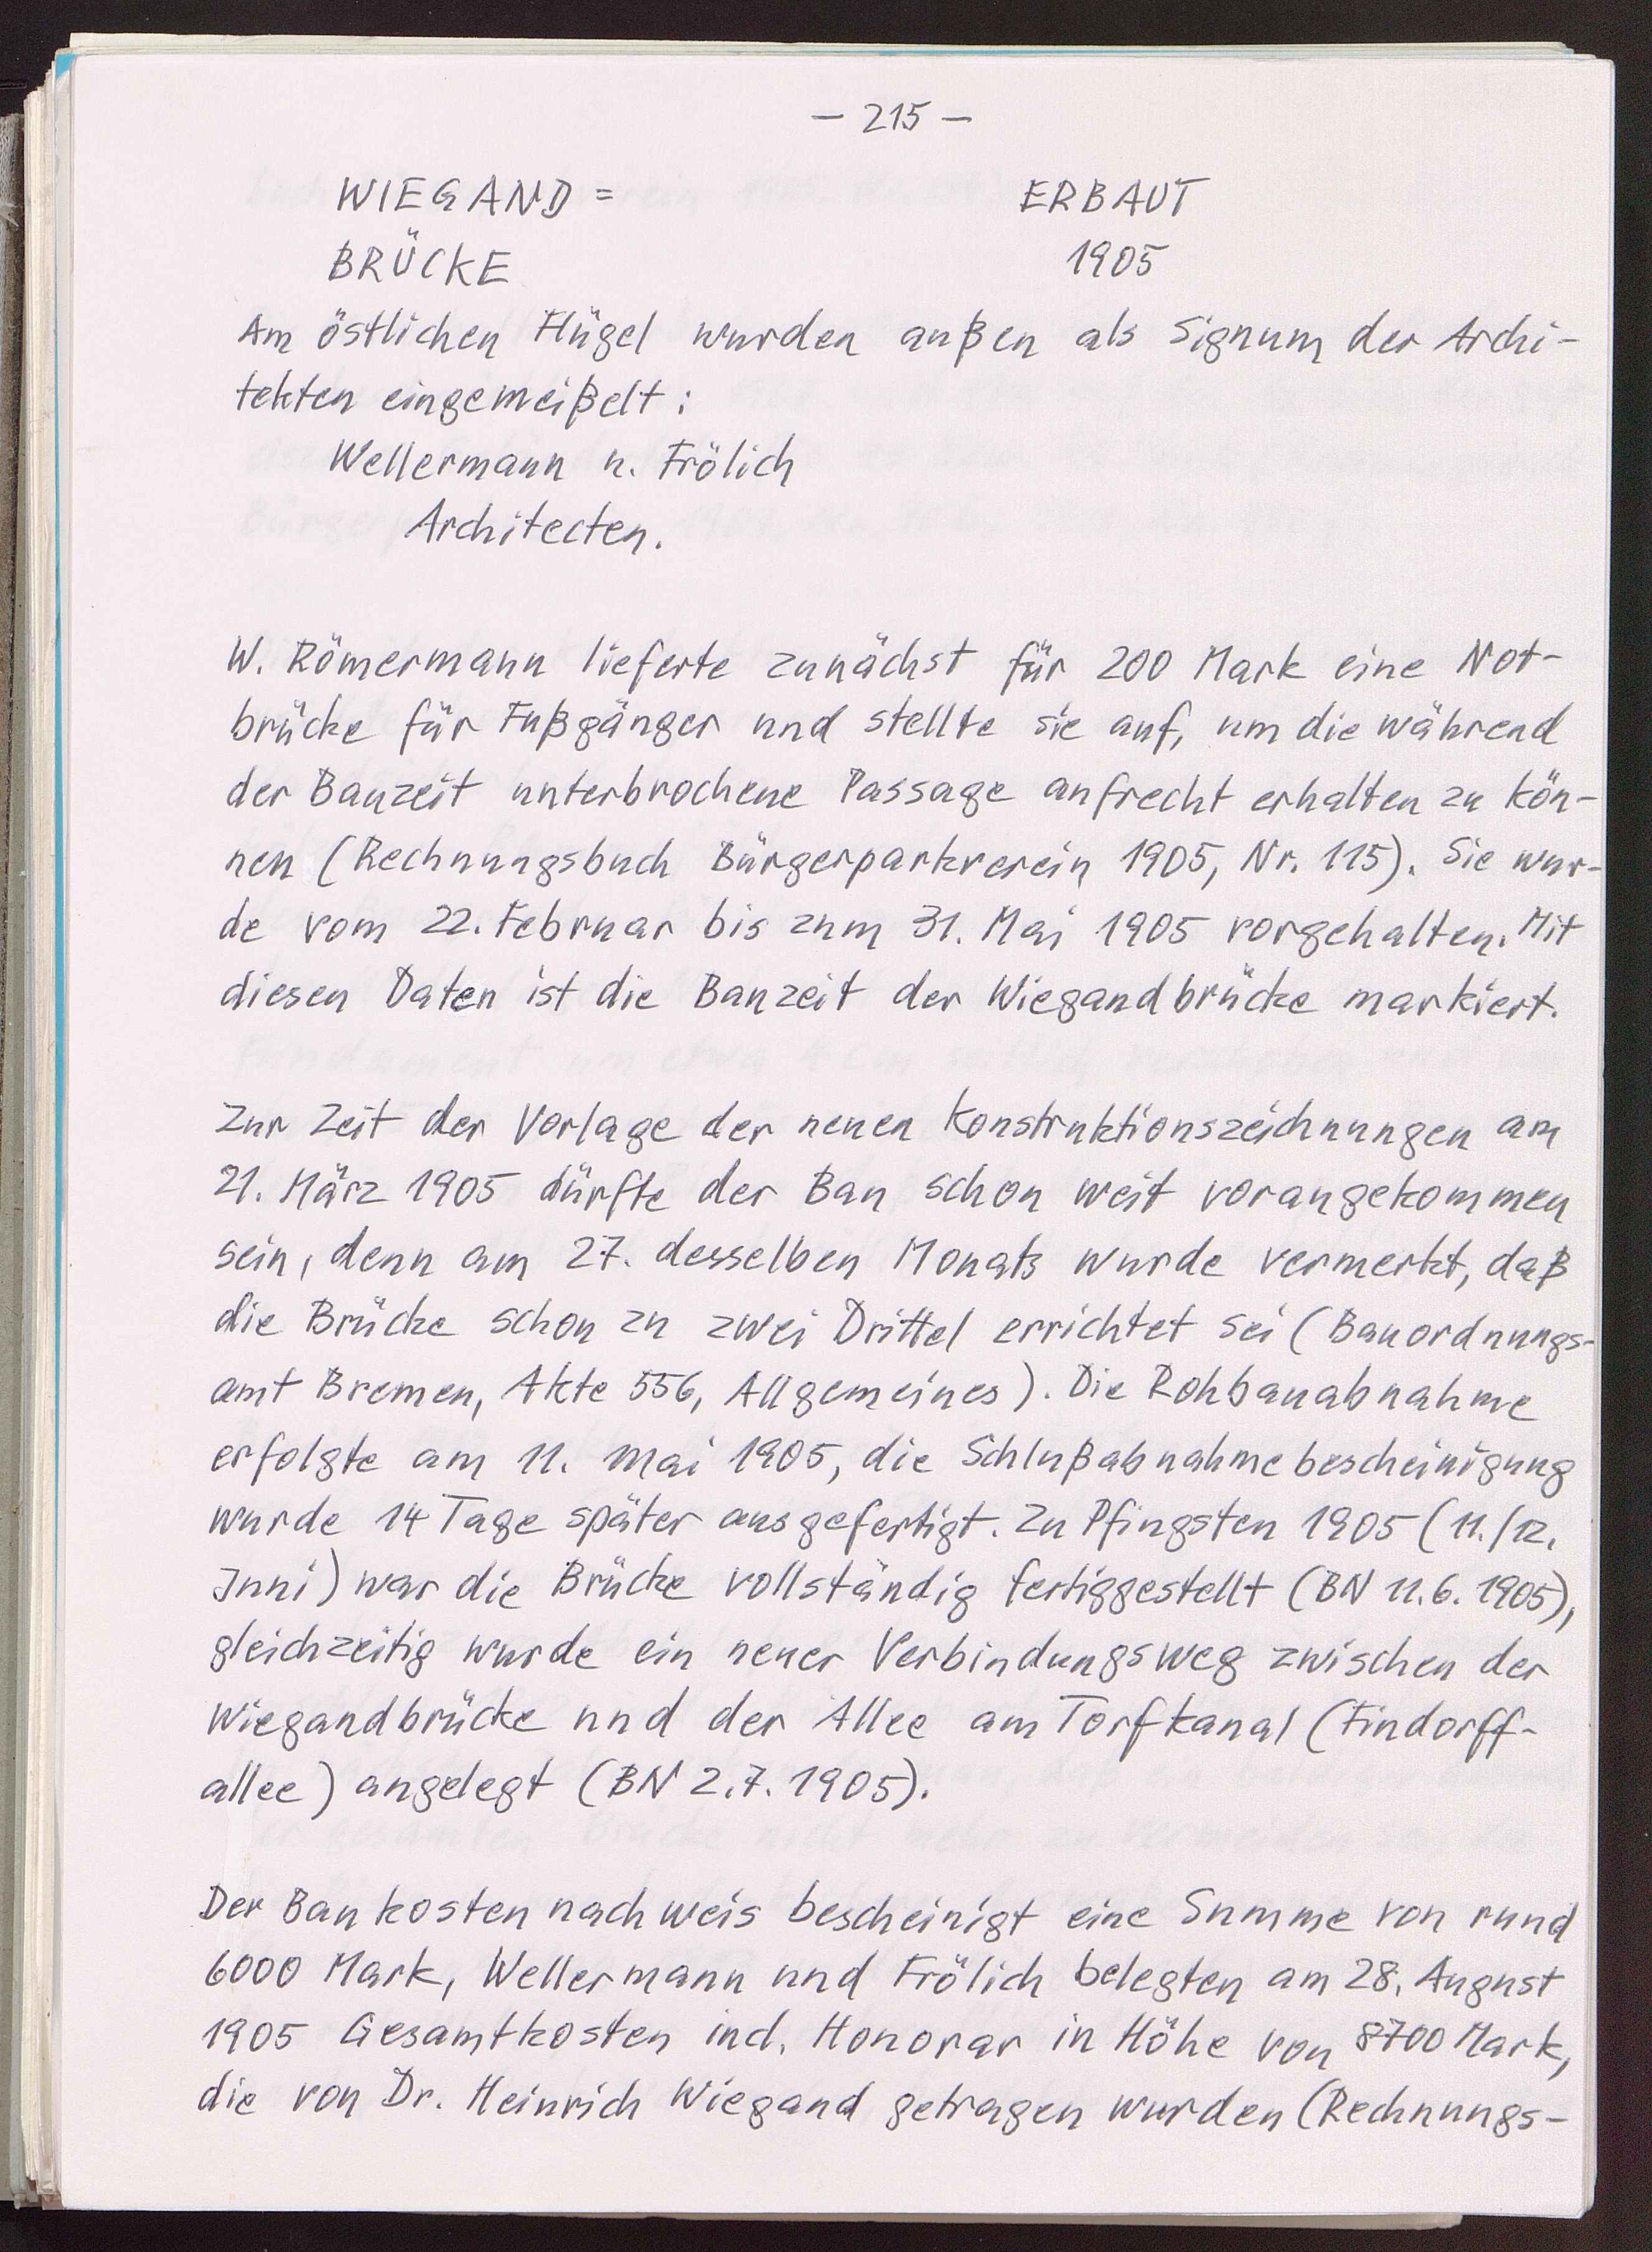 – 215 –
WIEGAND = ERBAUT
BRÜCKE 1905
Am östlichen Flügel wurden außen als Signum der Archi-
tekten eingemeißelt:
Wellermann u. Frölich
Architecten.
W. Römermann lieferte zunächst für 200 Mark eine Not-
brücke für Fußgänger und stellte sie auf, um die während
der Bauzeit unterbrochene Passage aufrecht erhalten zu kön-
nen (Rechnungsbuch Bürgerparkverein 1905, Nr. 115). Sie wur-
de vom 22. Februar bis zum 31. Mai 1905 vorgehalten. Mit
diesen Daten ist die Bauzeit der Wiegandbrücke markiert.
Zur Zeit der Vorlage der neuen Konstruktionszeichnungen am
21. März 1905 dürfte der Bau schon weit vorangekommen
sein, denn am 27. desselben Monats wurde vermerkt, daß
die Brücke schon zu zwei Drittel errichtet sei (Bauordnungs-
amt Bremen, Akte 556, Allgemeines). Die Rohbauabnahme
erfolgte am 11. Mai 1905, die Schlußabnahmebescheinigung
wurde 14 Tage später ausgefertigt. Zu Pfingsten 1905 (11./12.
Juni) war die Brücke vollständig fertiggestellt (BN 11.6.1905),
gleichzeitig wurde ein neuer Verbindungsweg zwischen der
Wiegandbrücke und der Allee am Torfkanal (Findorff-
allee) angelegt (BN 2.7.1905).
Der Baukostennachweis bescheinigt eine Summe von rund
6000 Mark, Wellermann und Frölich belegten am 28. August
1905 Gesamtkosten incl. Honorar in Höhe von 8700 Mark,
die von Dr. Heinrich Wiegand getragen wurden (Rechnungs-